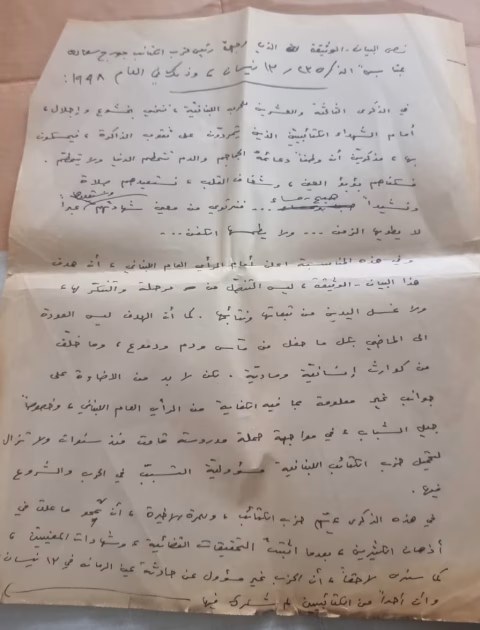 نص البيان - الوثيقة الذي وجهه رئيس حزب الكتائب جورج سعاده
بمناسبة الذكرى ٢٣ لـ ١٣ نيسان، وذلك في العام ١٩٩٨:
في الذكرى الثالثة والعشرين للحرب اللبنانية، ننحني بخشوع وإجلال،
أمام الشهداء الكتائبيين الذين يتمردون على ثقوب الذاكرة، فيمسكون
بها، مذكرين أن وطناً دعامته الجماجم والدم تتحطم الدنيا ولا يتحطم.
فنكفنهم بؤبؤ العين، وشغاف القلب، نستعيدهم صلاة
ونشيداً صبح - مساء ... فنرتوي من معين شهادتهم عبراً
لا يطويها الزمن ... ولا يطمسها الكفن...
وفي هذه المناسبة اعلن أمام الرأي العام اللبناني، أن هدف
هذا البيان - الوثيقة، ليس التنصّل من مرحلة والتنكر لها،
ولا غسل اليدين من تبعاتها ونتائجها. كما أن الهدف ليس العودة
الى الماضي بكل ما حفل من مآسٍ ودم ودموع، وما خلّف
من كوارث إنسانيّة ومادية. لكن لا بد من الاضاءة على
جوانب غير معلومة بما فيه الكفاية من الرأي العام اللبناني، وخصوصاً
جيل الشباب، في مواجهة حملة مدروسة قامت منذ سنوات ولا تزال
لتحميل حزب الكتائب اللبنانية مسؤولية التسبّب في الحرب والشروع
فيها.
في هذه الذكرى، حزب الكتائب، وللمرة الاخيرة، أن يمحو ما علق في
أذهان الكثيرين، بعدما أثبتت التحقيقات القضائية، وشهادات المعنيين،
كما سنرى لاحقاً، أن الحزب غير مسؤول عن حادثة عين الرمانه في ١٣ نيسان
وان أحداً من الكتائبيين لم يشترك فيها